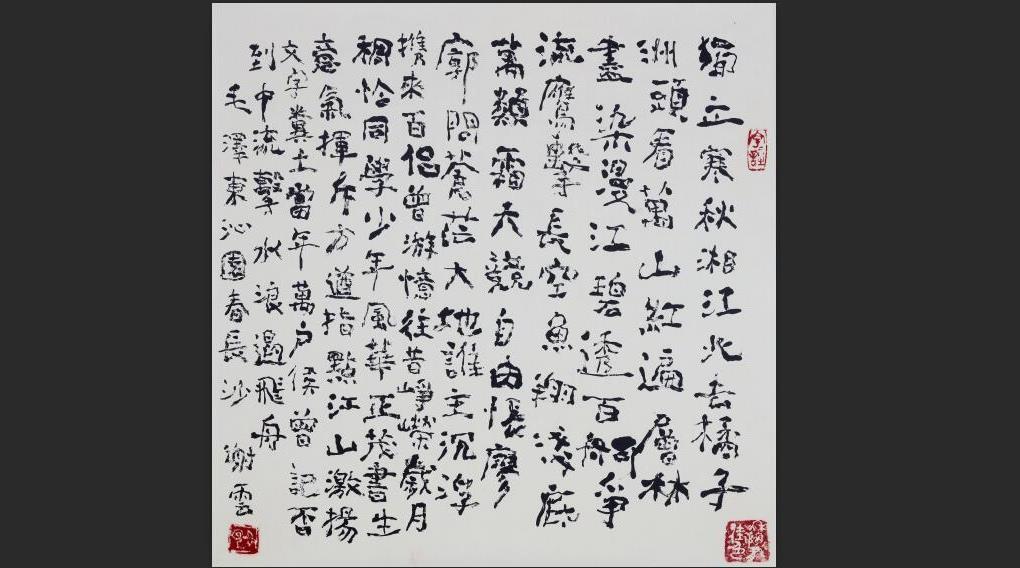 獨立寒秋湘江北去橘子
洲頭看萬山紅遍層林
盡染漫江碧透百舸爭
流鷹擊長空魚翔淺底
萬類霜天競自由悵寥
廓問蒼茫大地誰主沉浮
攜來百侶曾游憶往昔崢嶸歲月
稠恰同學少年風華正茂書生
意氣揮斥方遒指點江山激揚
文字糞土當年萬戶侯曾記否
到中流擊水浪遏飛舟
毛澤東沁園春長沙 謝雲